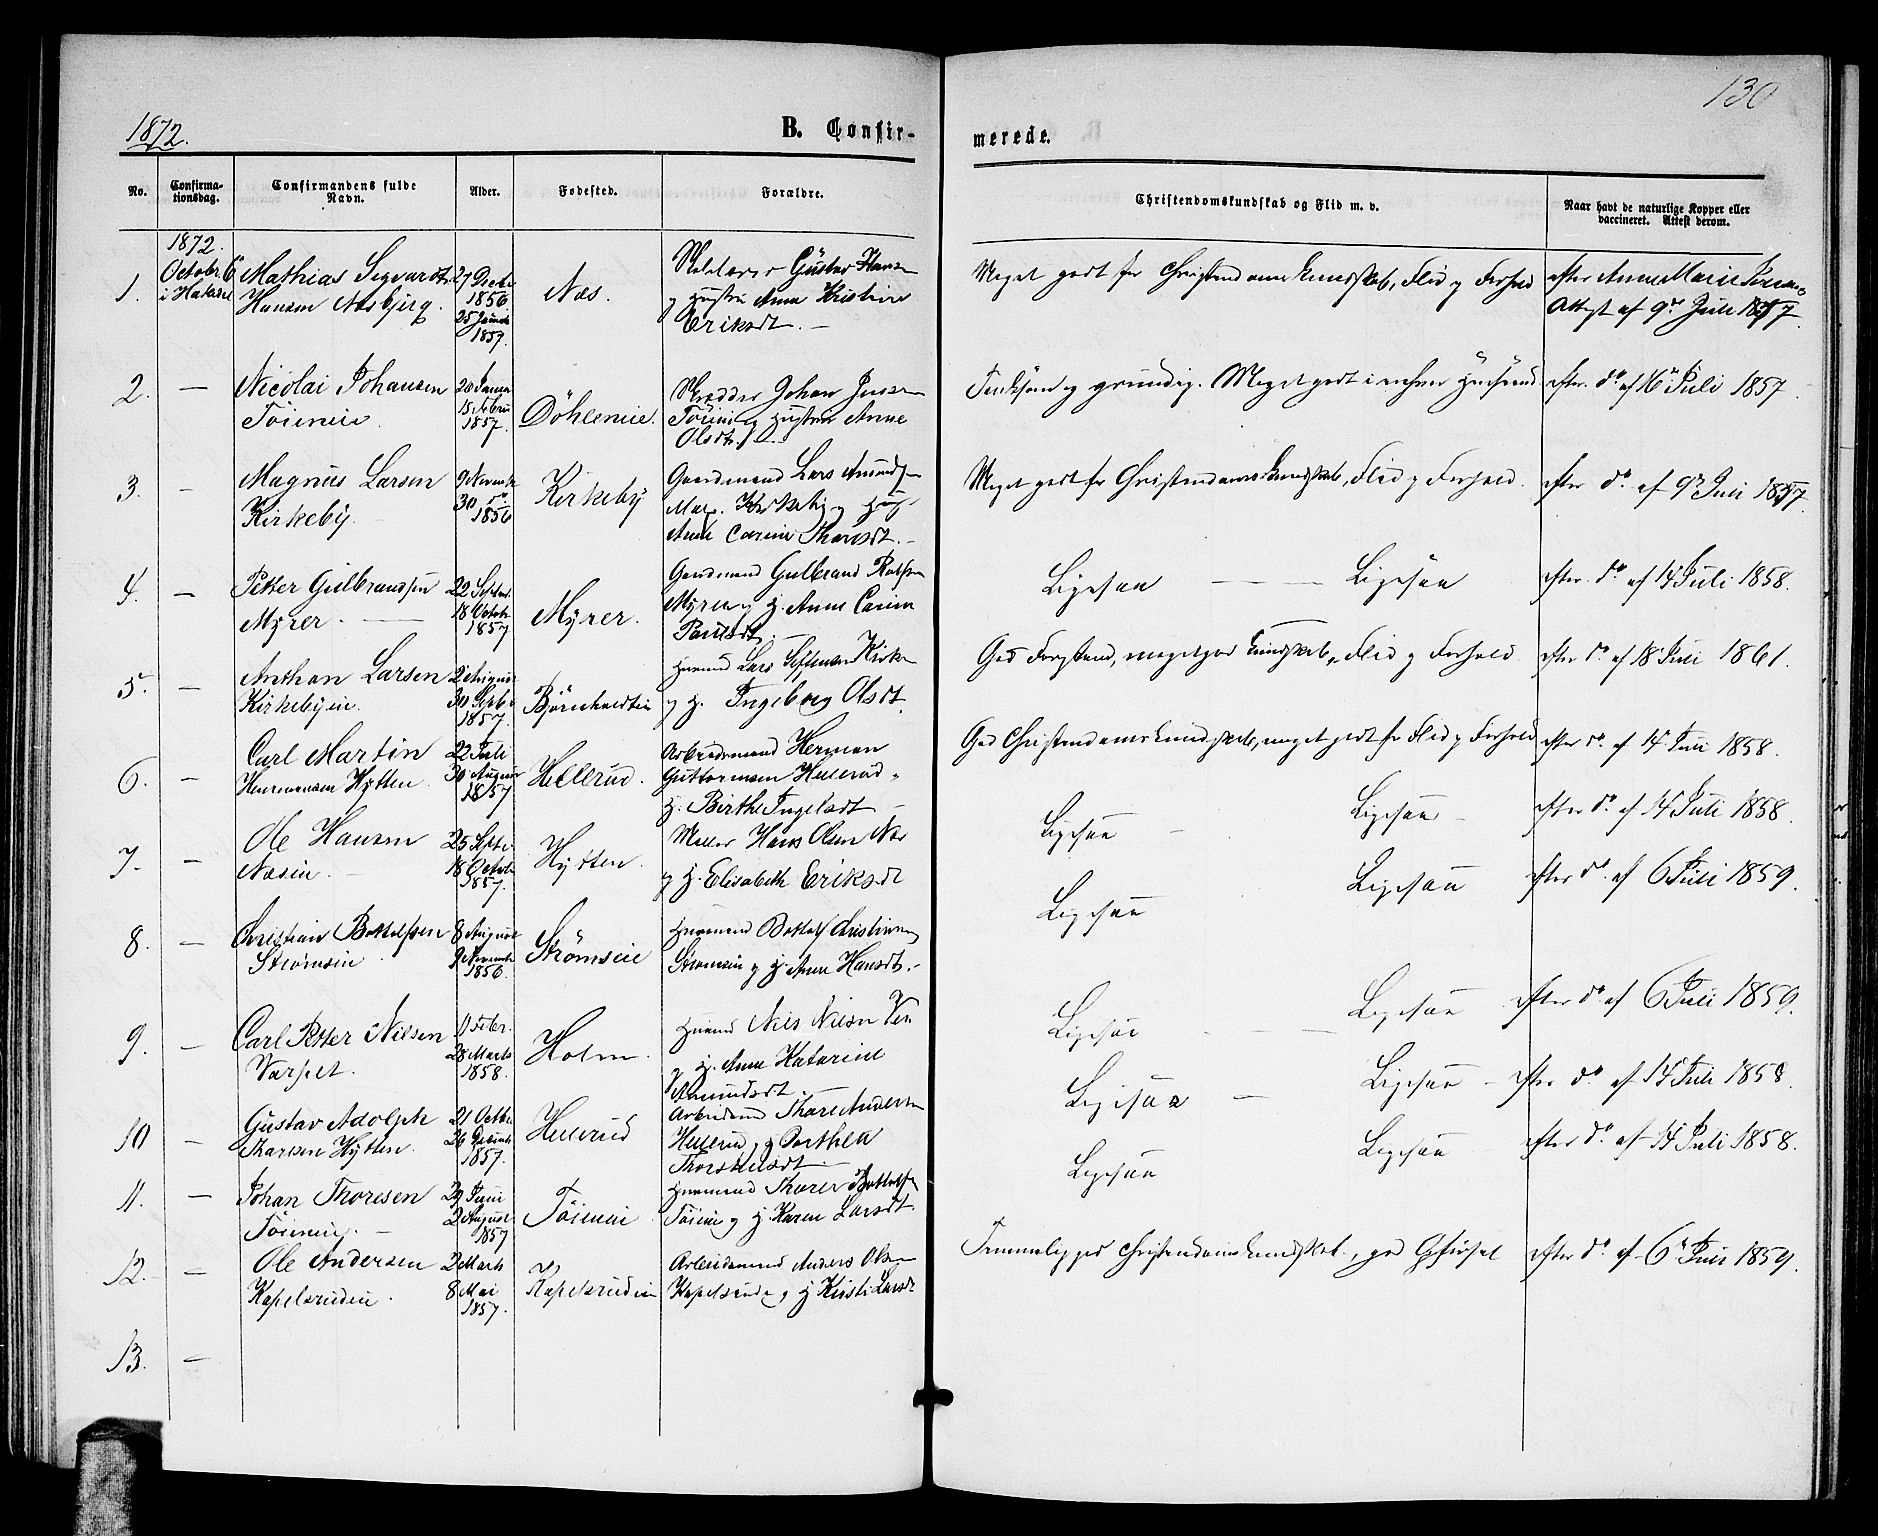 130
1872.
B. Confir-
merede.
No.
Confirma-
tionsdag.
Confirmandens fulde
Navn.
Alder.
Fødested.
Forældre.
Christendomskundskab og Flid m. v.
Naar havt de naturlige Kopper eller
vaccineret. Attest derom.
1872.
1. Octobr. 6 Mathias Segvardt 27 Decbr
i Hakedal Hansen Næsbjerg. 1856
25 Januar
1857.
Næs.
Gustav Hansen
og Hustru Anne Kristine
Eriksdt. —
Meget godt for Christendomskundskab, Flid og Forhold
efter Anne Marie
Attest af 9de Juli 1857.
2. — Nicolai Johansen 20 Januar
Töieneie. 15 Febru
1857.
Döhleneie.
Skrædder Johan Jensen
Töieneie og Hustru Anne
Olsdt.
grundig. Meget godt i enhver Henseende
efter do af 16 Juli 1857.
3. — Magnus Larsen 9 Novemb
Kirkeby. 30 do
1856
Kirkeby
Gaardmand Lars Amunds
Kirkeby og Hus.
Anne Carine Thorsdt. —
Meget godt for Christendomskundskab, Flid og Forhold.
efter do af 9de Juli 1857.
4. — Petter Gulbrandsen 22 Septbr.
Myrer. — 18 Octobr
1857
Myrer.
Gaardmand Gulbrand
Myrer og H. Anne Carine
Paulsdt. —
Ligesaa — — Ligesaa
efter do af 14 Juli 1858.
5. — Anthon Larsen 2 August
Kirkebyeie. 30 Septbr
1857.
Björnholdteie
Huusmand Lars
og H. Ingeborg Olsdt.
God Forstand, meget god Kundskab, Flid og Forhold
efter do af 18 Juli 1861.
6. — Carl Martin 22 Juli
Hermansen Hytten. 30 August
1857
Hellerud.
Arbeidsmand Herman
Guttormsen Hellerud
H. Birthe Ingelsdt —
God Christendomskundskab, meget godt for Flid og Forhold
efter do af 14 Juli 1858.
7. — Ole Hansen 25 Septbr
Næseie. — 18 Octob
1857.
Hytten.
Møller Hans Olsen Næs
og H. Elisabeth Eriksdt
Ligesaa — Ligesaa —
efter do af 14 Juli 1858.
8. — Christian Bottolfsen 8 August
Strömseie. 9 Novemb
1856.
Strömseie
Huusmand Bottolf Christians
Strömseie og H. Anne Hansdt. —
Ligesaa Ligesaa
efter do af 6 Juli 1859.
9. — Carl Petter Nilsen 11 Febr.
Varpet. 28 Marts
1858.
Holm.
Huusmand Nils Nilsen
og H. Anne Katarine
Amundsdt.
Ligesaa — — Ligesaa
efter do af 6 Juli 1859.
10 — Gustav Adolph 21 Octbr
Thoresen Hytten. 26 Decemb
1857.
Hellerud
Arbeidsmd Thore Andersen
Hellerud og Barthea
Thorstelsdt —
Ligesaa — Ligesaa —
efter do af 14 Juli 1858.
11. — Johan Thoresen 29 Juni
Töieneie. — 2 August
1857
Töieneie
Huusmand Thorer Bottolfs
Töieneie og H. Karen Larsdt
Ligesaa Ligesaa —
efter do af 14 Juli 1858.
12. — Ole Andersen 2 Marts
Kapelsrudeie. 8 Mai
1857.
Kapelsrudeie
Arbeidsmand Anders Olsen
Kapelsrudeie og H. Kirsti Larsdt
Temmelig god Christendomskundskab, god Opførsel
efter do af 6 Juli 1859.
13. —